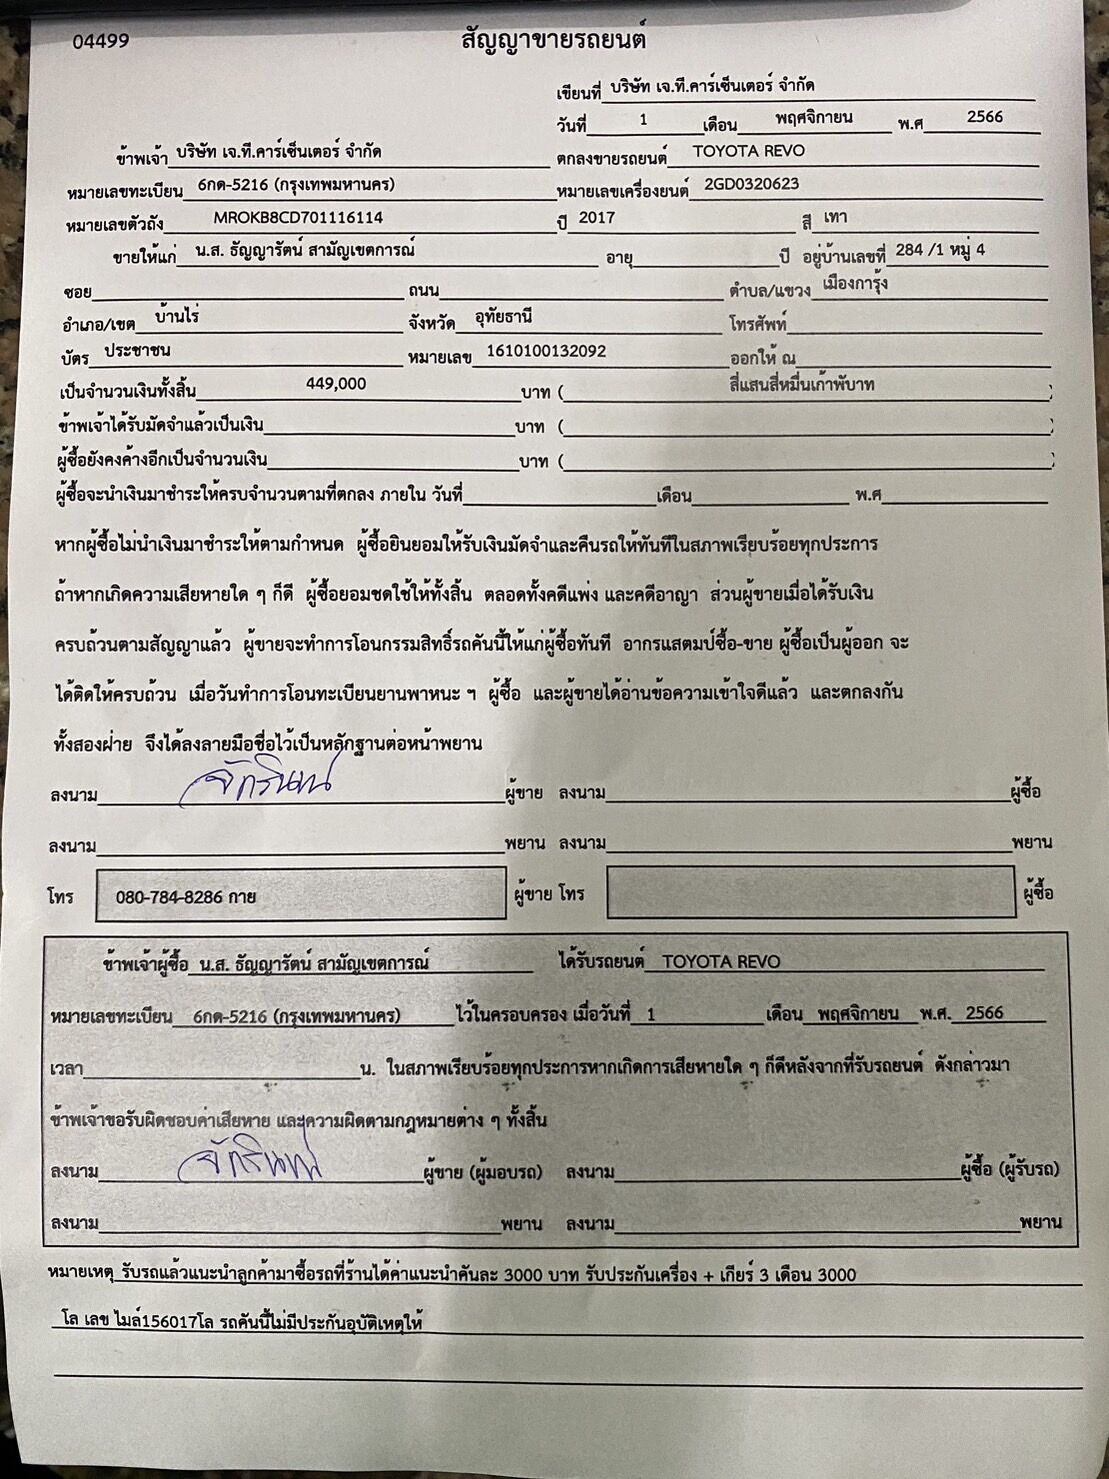 04499
สัญญาขายรถยนต์
เขียนที่ บริษัท เจ.ที.คาร์เซ็นเตอร์ จำกัด
วันที่ 1 เดือน พฤศจิกายน พ.ศ 2566
ข้าพเจ้า บริษัท เจ.ที.คาร์เซ็นเตอร์ จำกัด ตกลงขายรถยนต์ TOYOTA REVO
หมายเลขทะเบียน 6กด-5216 (กรุงเทพมหานคร) หมายเลขเครื่องยนต์ 2GD0320623
หมายเลขตัวถัง MROKB8CD701116114 ปี 2017 สี เทา
ขายให้แก่ น.ส. ธัญญารัตน์ สามัญเขตการณ์ อายุ ปี อยู่บ้านเลขที่ 284 /1 หมู่ 4
ซอย ถนน ตำบล/แขวง เมืองการุ้ง
อำเภอ/เขต บ้านไร่ จังหวัด อุทัยธานี โทรศัพท์
บัตร ประชาชน หมายเลข 1610100132092 ออกให้ ณ
เป็นจำนวนเงินทั้งสิ้น 449,000 บาท ( สี่แสนสี่หมื่นเก้าพับาท )
ข้าพเจ้าได้รับมัดจำแล้วเป็นเงิน บาท ( )
ผู้ซื้อยังคงค้างอีกเป็นจำนวนเงิน บาท ( )
ผู้ซื้อจะนำเงินมาชำระให้ครบจำนวนตามที่ตกลง ภายใน วันที่ เดือน พ.ศ
หากผู้ซื้อไม่นำเงินมาชำระให้ตามกำหนด ผู้ซื้อยินยอมให้รับเงินมัดจำและคืนรถให้ทันทีในสภาพเรียบร้อยทุกประการ
ถ้าหากเกิดความเสียหายใด ๆ ก็ดี ผู้ซื้อยอมชดใช้ให้ทั้งสิ้น ตลอดทั้งคดีแพ่ง และคดีอาญา ส่วนผู้ขายเมื่อได้รับเงิน
ครบถ้วนตามสัญญาแล้ว ผู้ขายจะทำการโอนกรรมสิทธิ์รถคันนี้ให้แก่ผู้ซื้อทันที อากรแสตมป์ซื้อ-ขาย ผู้ซื้อเป็นผู้ออก จะ
ได้ติดให้ครบถ้วน เมื่อวันทำการโอนทะเบียนยานพาหนะ ฯ ผู้ซื้อ และผู้ขายได้อ่านข้อความเข้าใจดีแล้ว และตกลงกัน
ทั้งสองฝ่าย จึงได้ลงลายมือชื่อไว้เป็นหลักฐานต่อหน้าพยาน
ลงนาม จักรินทน์ ผู้ขาย ลงนาม ผู้ซื้อ
ลงนาม พยาน ลงนาม พยาน
โทร 080-784-8286 กาย ผู้ขาย โทร ผู้ซื้อ
ข้าพเจ้าผู้ซื้อ น.ส. ธัญญารัตน์ สามัญเขตการณ์ ได้รับรถยนต์ TOYOTA REVO
หมายเลขทะเบียน 6กด-5216 (กรุงเทพมหานคร) ไว้ในครอบครอง เมื่อวันที่ 1 เดือน พฤศจิกายน พ.ศ. 2566
เวลา น. ในสภาพเรียบร้อยทุกประการหากเกิดการเสียหายใด ๆ ก็ดีหลังจากที่รับรถยนต์ ดังกล่าวมา
ข้าพเจ้าขอรับผิดชอบค่าเสียหาย และความผิดตามกฎหมายต่าง ๆ ทั้งสิ้น
ลงนาม จักรินทน์ ผู้ขาย (ผู้มอบรถ) ลงนาม ผู้ซื้อ (ผู้รับรถ)
ลงนาม พยาน ลงนาม พยาน
หมายเหตุ รับรถแล้วแนะนำลูกค้ามาซื้อรถที่ร้านได้ค่าแนะนำคันละ 3000 บาท รับประกันเครื่อง + เกียร์ 3 เดือน 3000
โล เลข ไมล์156017โล รถคันนี้ไม่มีประกันอุบัติเหตุให้